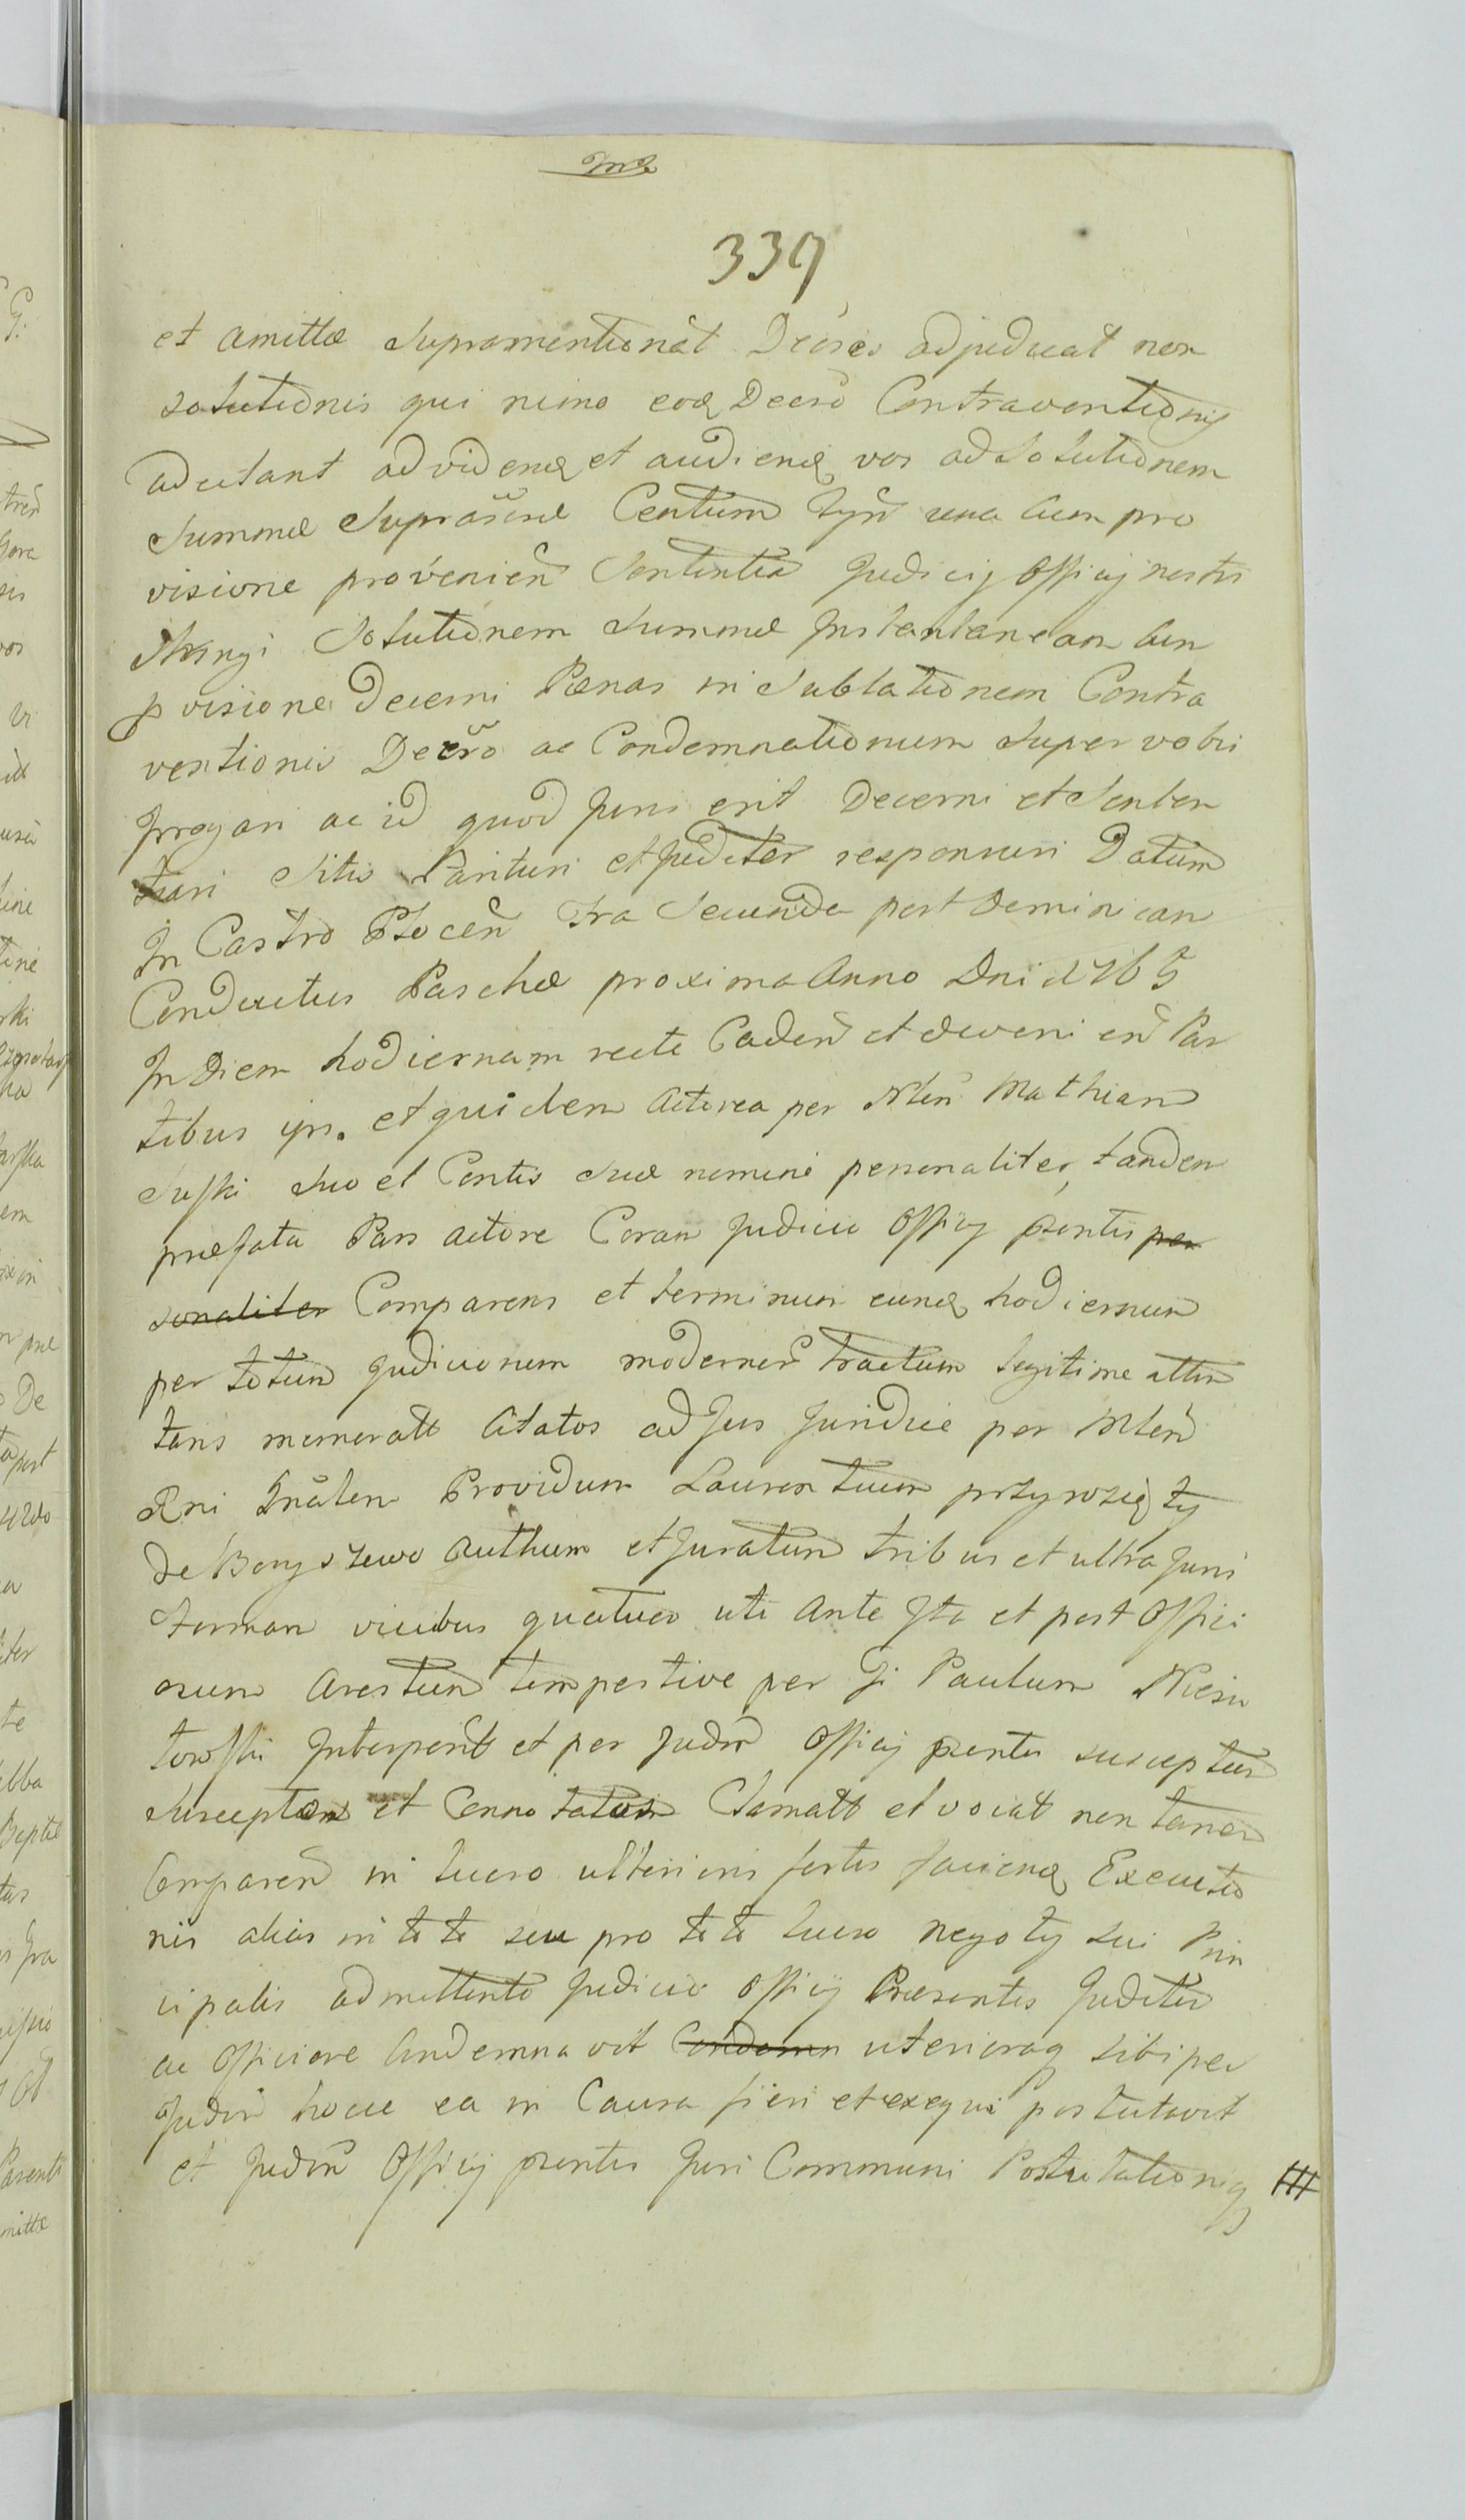 339
et amittæ Supramentionat Decreo adjudicat non
solutionis qui nimo eoq Decro Contraventionis
adcitant ad videnq et audienq vos ad Solutionem
Summæ Suprascræ Centum Tyn una cum pro
visione provenien Sententia Judicij Officij nostri
Solutionem Summæ Instantaneam cum
pvisione Decerni Pænas in Sublationem Contra
ventionis Decro ac Condemnationum Super vobis
Irrogari ac id quod Juris erit Decerni et Senten
tiari Sitis Parituri et Juditer responsuri Datum
In Castro Plocen Fra Secunda post Dominicam
Conductus Paschæ proxima Anno Dni 1765
In Diem hodiernam recte Caden et deveni en Par
tibus ipis. et quidem Actorea per Mten Mathiam
Suski Suo et Contis Suæ nomine personaliter, tandem
præfata Pars actore Coram Judicio Officij prentis per
sonaliter Comparens et terminum eunq hodiernum
per totum Judiciorum modernor tractum legitime atten
tans memoratt Citatos ad Jus Juridice per Mten
Rni Gnalem Providum Laurentium przywzięty
de Boryszewo Authum et Juratum tribus et ultra Juris
Formam vicibus quatuor uti Ante Ita et post Offici
osum Arestum tempestive per G. Paulum Niesu
towski Interposit et per Judm Officij prentis susceptum
Susceptum et Connotatum Clamatt et vocatt non tamen
Comparen in lucro ulterioris fortis faciend Executio
nis alias in toto seu pro toto lucro negotij sui Prin
cipalis admittente Judicio Officij Præsentis Juditer
ac Officiose Condemnavit Condemn uterioraq sibi per
Judm hocce ea in Causa fieri et exequi postulavit
et Judm Officij prentis Juri Communi Postulationiq